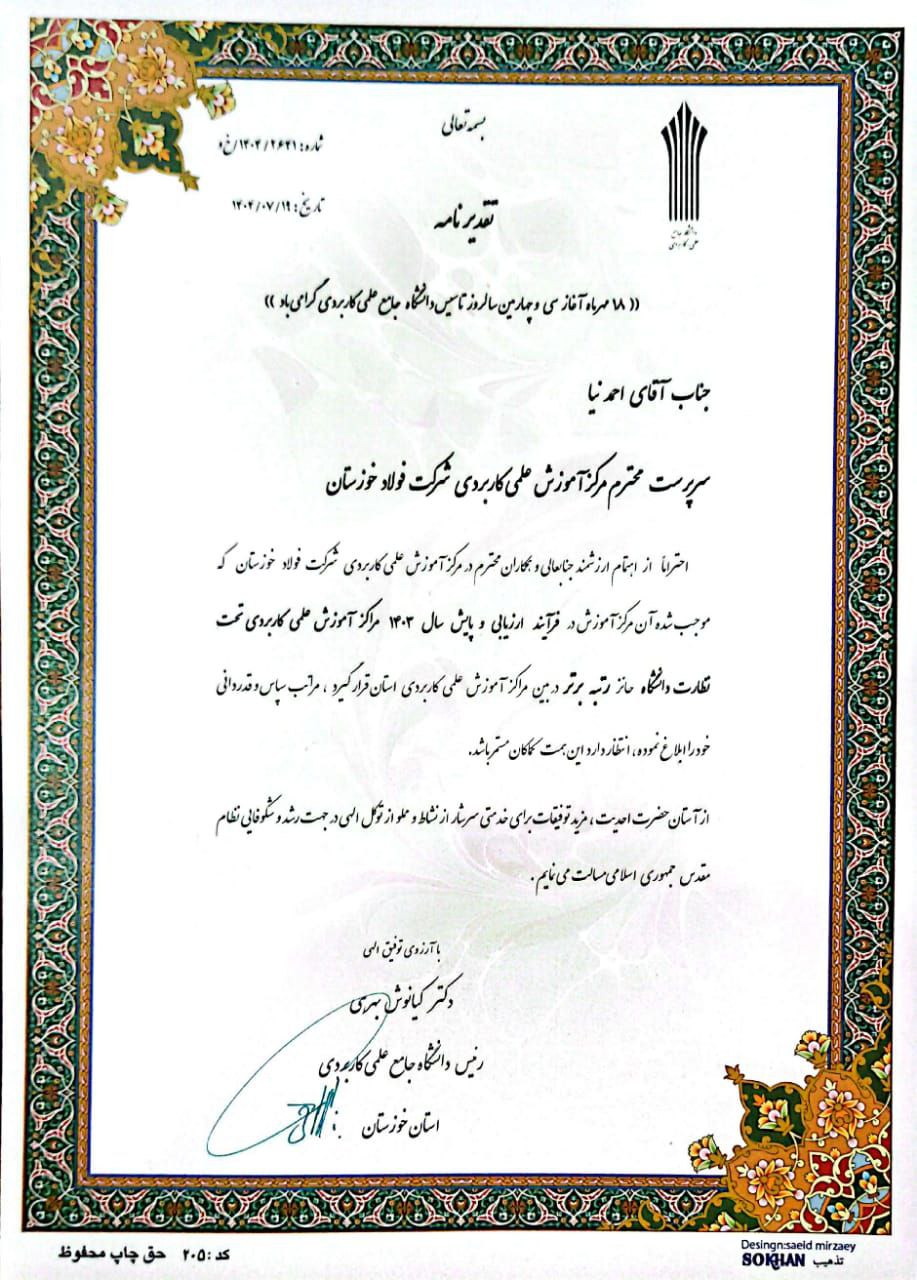 بسمه تعالی
شماره: ۱۴۰۴/۲۶۴۱/خ و
تاریخ: ۱۴۰۴/۰۷/۱۹
دانشگاه جامع
علمی کاربردی
تقدیرنامه
(( ۱۸ مهرماه آغاز سی و چهارمین سالروز تاسیس دانشگاه جامع علمی کاربردی گرامی باد ))
جناب آقای احمد نیا
سرپرست محترم مرکز آموزش علمی کاربردی شرکت فولاد خوزستان
احتراماً از اهتمام ارزشمند جنابعالی و همکاران محترم در مرکز آموزش علمی کاربردی شرکت فولاد خوزستان که
موجب شده آن مرکز آموزش در فرآیند ارزیابی و پایش سال ۱۴۰۳ مراکز آموزش علمی کاربردی تحت
نظارت دانشگاه حائز رتبه برتر در بین مراکز آموزش علمی کاربردی استان قرار گیرد ، مراتب سپاس و قدردانی
خود را ابلاغ نموده، انتظار دارد این همت کماکان مستمر باشد.
از آستان حضرت احدیت ، مزید توفیقات برای خدمتی سرشار از نشاط و مملو از توکل الهی در جهت رشد و شکوفایی نظام
مقدس جمهوری اسلامی مسالت می نمایم .
با آرزوی توفیق الهی
دکتر کیانوش
رئیس دانشگاه جامع علمی کاربردی
استان خوزستان
کد : ۲۰۵ حق چاپ محفوظ
Desingn:saeid mirzaey
SOKHAN تذهیب